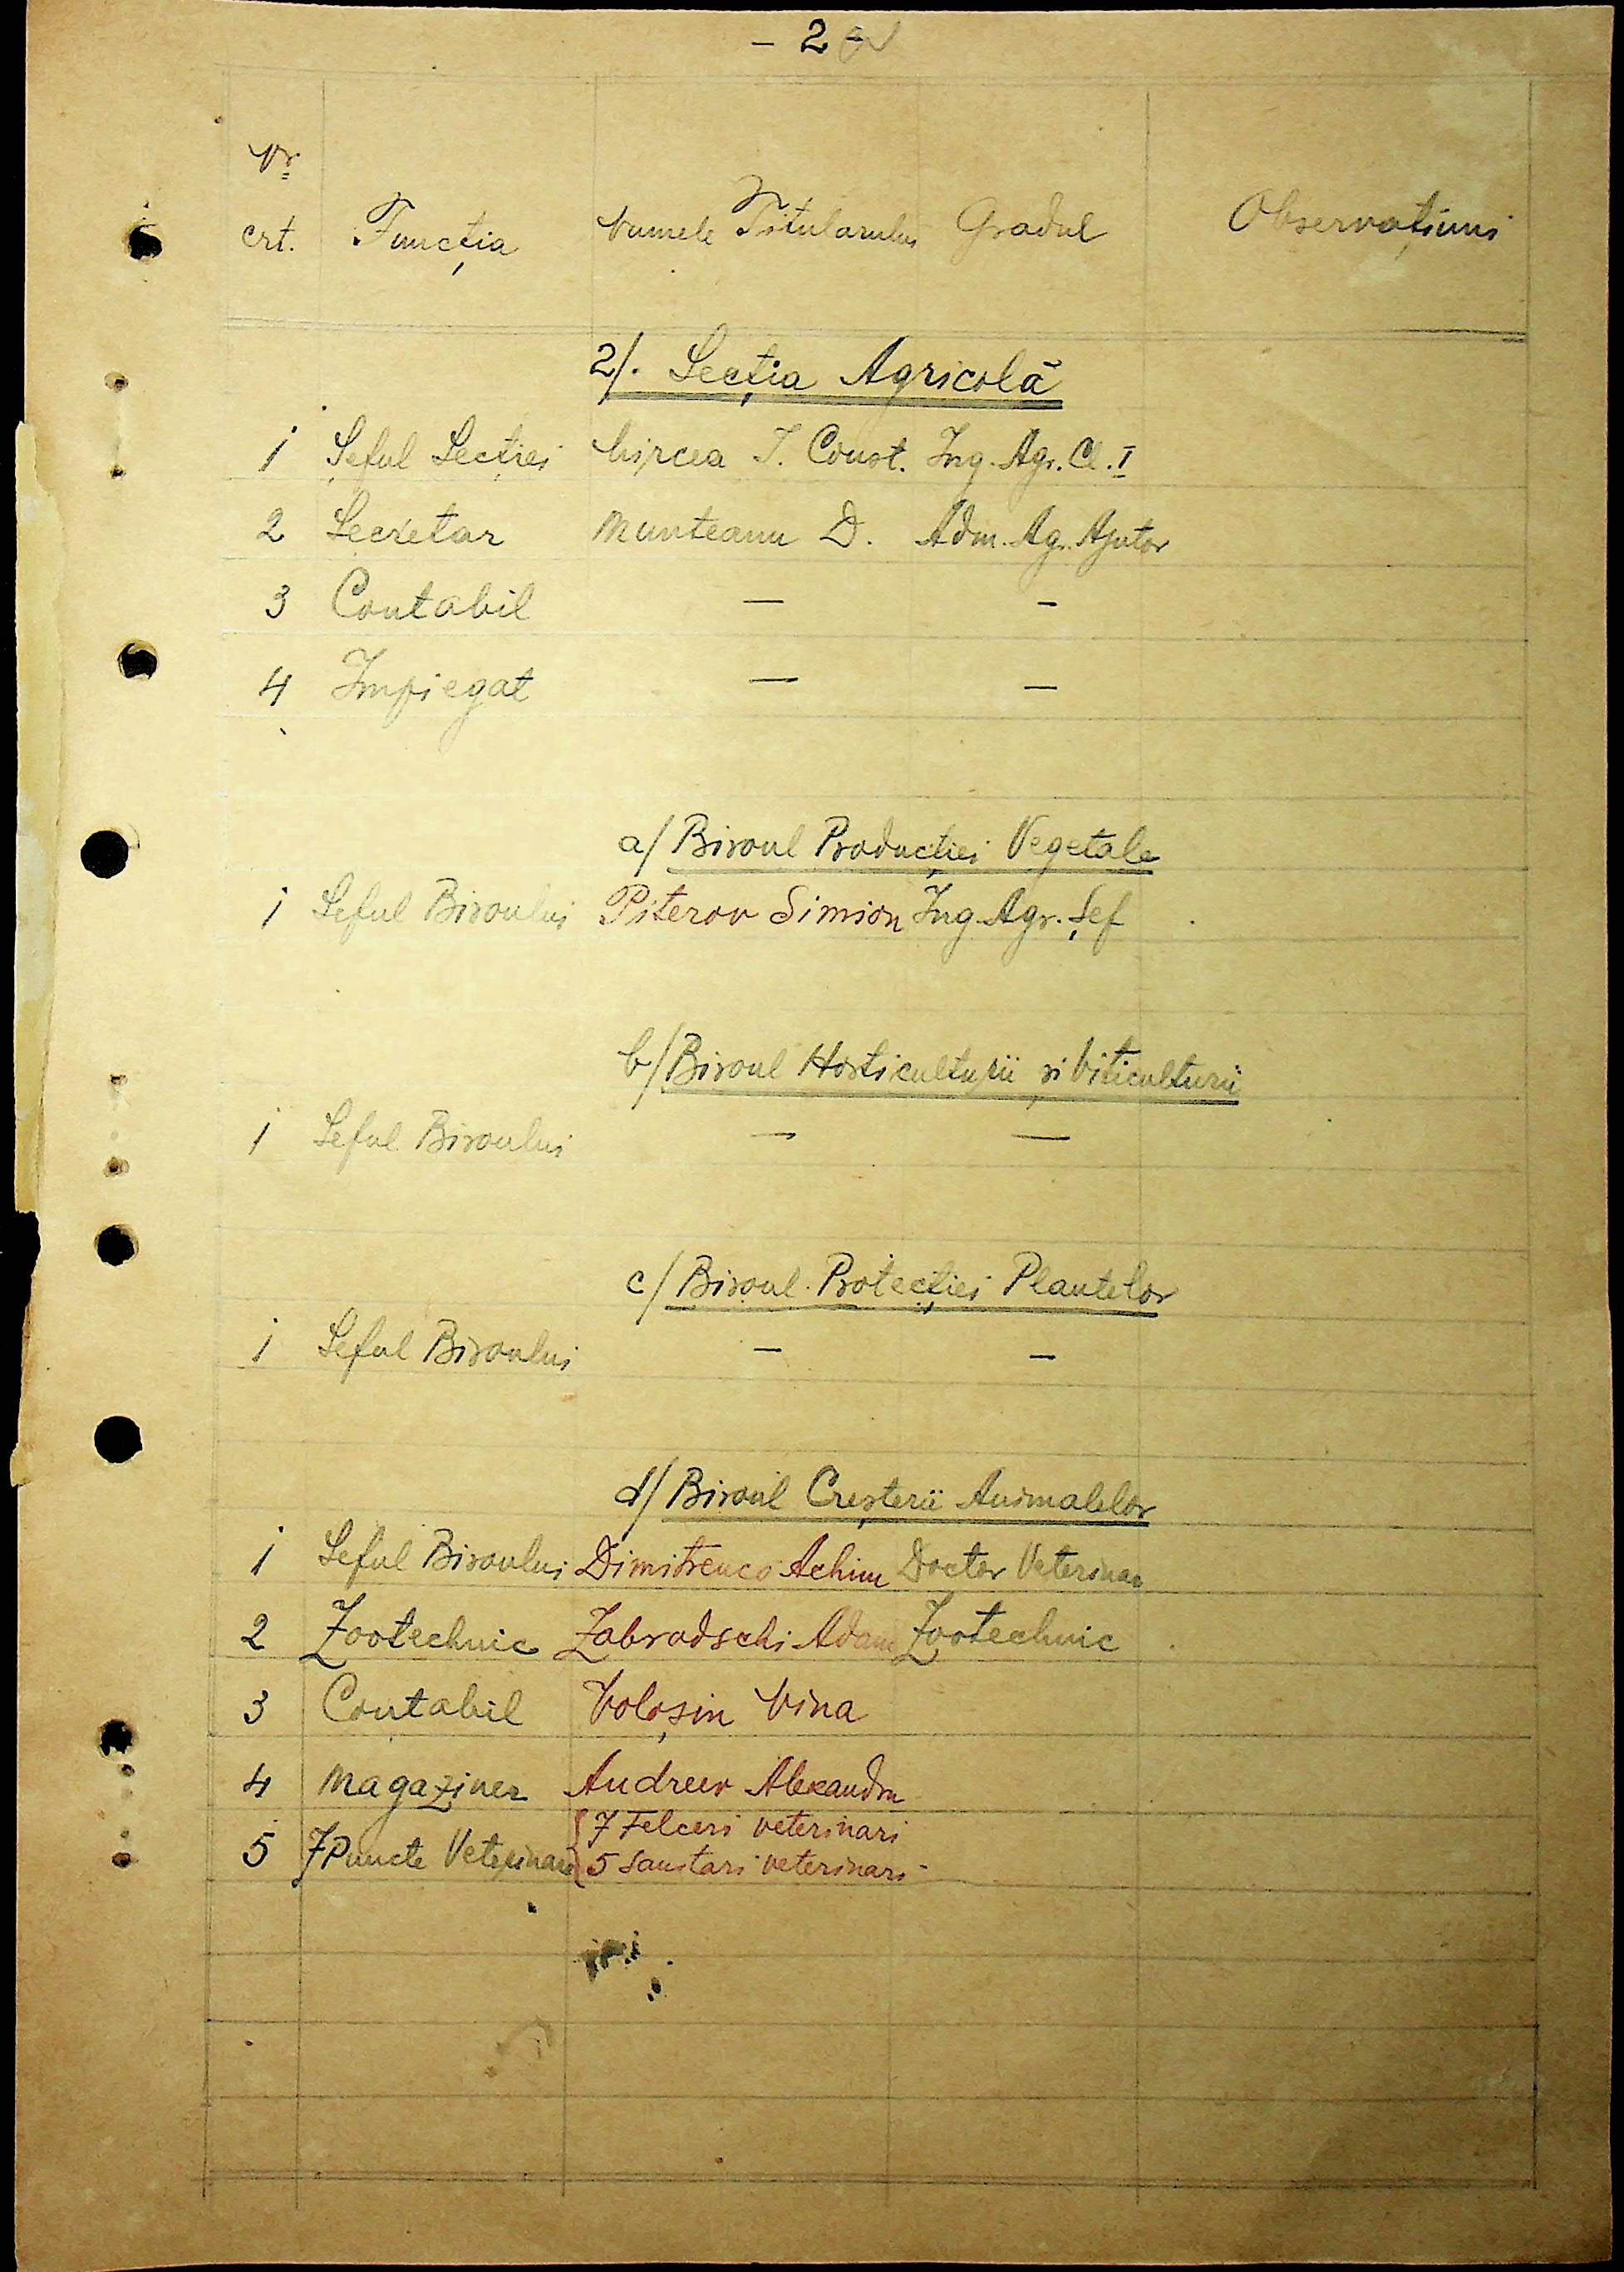 - 2 -
Nr.
crt. Funcția Numele Titularului Gradul Observațiuni
2/. Secția Agricolă
1 Șeful Secției Mircea I. Const. Ing. Agr. Cl. I
2 Secretar Munteanu D. Adm. Agr. Ajutor
3 Contabil — -
4 Impiegat — —
a/ Biroul Producției Vegetale
1 Seful Biroului Piterov Simion Ing. Agr. Șef
b/ Biroul Horticulturii și Viticulturii
1 Seful Biroului — —
c/ Biroul Protecției Plantelor
1 Seful Biroului — —
d/ Biroul Creșterii Animalelor
1 Seful Biroului Dimitrenco Achim Doctor Veterinar
2 Zootechnic Zabrodschi Adam Zootechnic
3 Contabil Voloșin Nina
4 Magaziner Andreev Alexandru
7 Felceri veterinari
5 7 Puncte Veterinare 5 sanitari veterinari